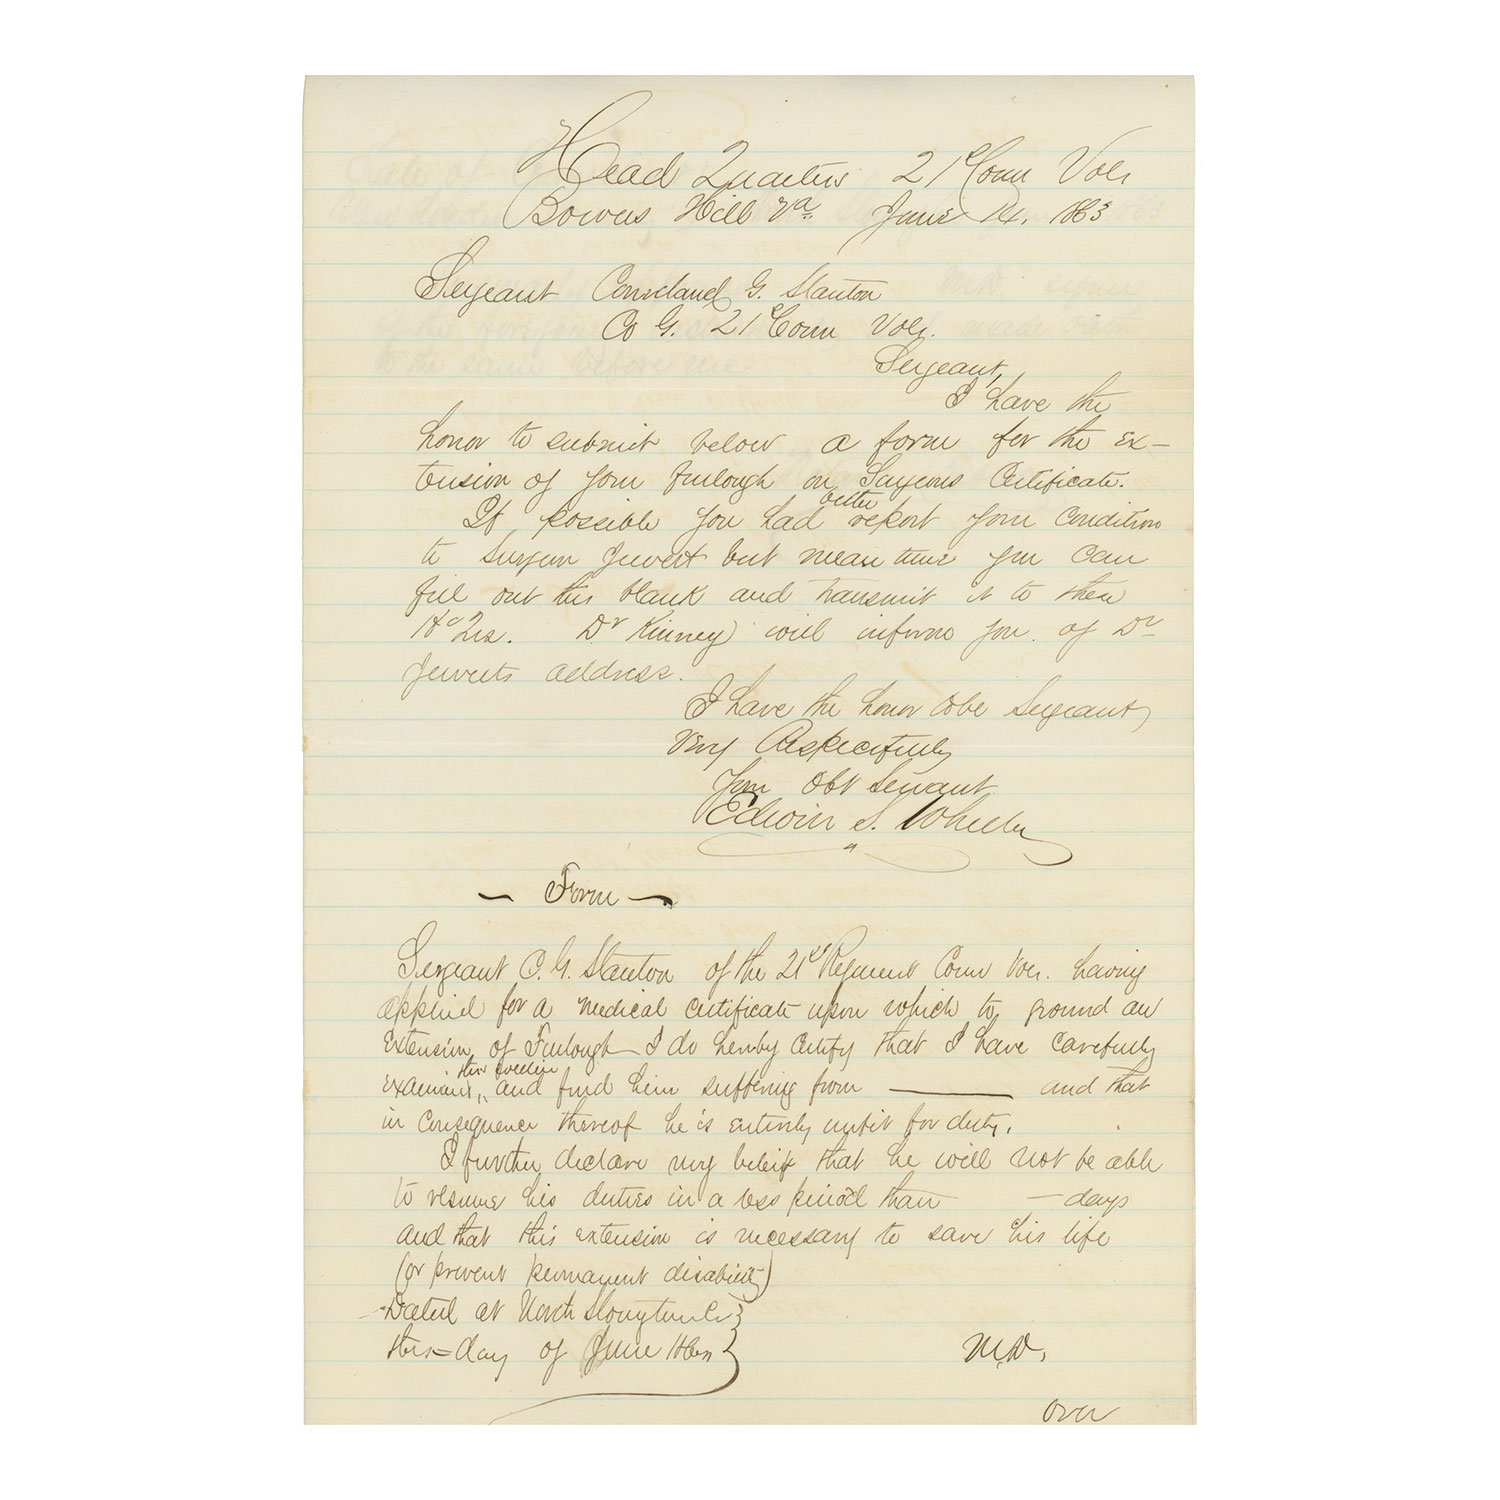 Head Quarters 21st Conn Vols
Bowers Hill Va. June 14. 1863
Sergeant Courtland G. Stanton
Co G. 21st Conn Vols.
Sergeant,
I have the
honor to submit below a form for the ex-
tension of your Furlough on Surgeons Certificate.
If possible you had better report your condition
to Surgeon Jewett but mean time you can
fill out this blank and transmit it to these
Hd Qrs. Dr Kinney will inform you of Dr
Jewetts address.
I have the honor to be Sergeant
Very Respectfully
Your Obt Servant
Edwin S. Wheeler
- Form -
Sergeant C. G. Stanton of the 21st Regiment Conn Vols. having
applied for a medical certificate upon which to ground an
extension of Furlough I do hereby certify that I have carefully
examined this Soldier and find him suffering from ——— and that
in consequence thereof he is entirely unfit for duty.
I further declare my belief that he will not be able
to resume his duties in a less period than — days
and that this extension is necessary to save his life
(or prevent permanent disability)
Dated at North Stonington Ct
this — day of June
M.D.
over